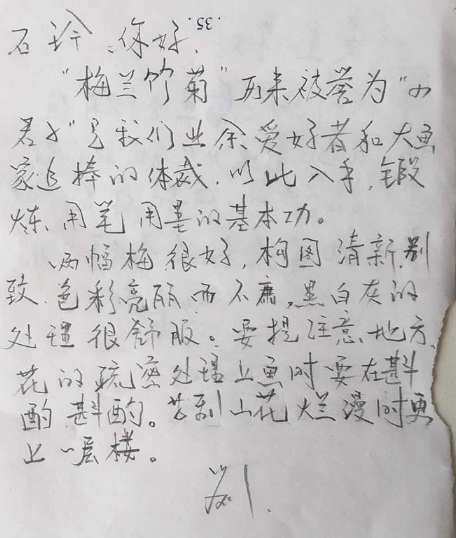 .35.
石玲、你好.
"梅兰竹菊"历来被誉为"四
君子"是我们业余爱好者和大画
家追捧的体裁.以此入手,锻
炼.用笔用墨的基本功。
两幅梅很好,构图清新.别
致.色彩亮丽而不.黑白灰的
处理很舒服。要提注意地方.
花的疏密处理上画时要在斟
酌斟酌。若到山花烂漫时更
上一层楼。